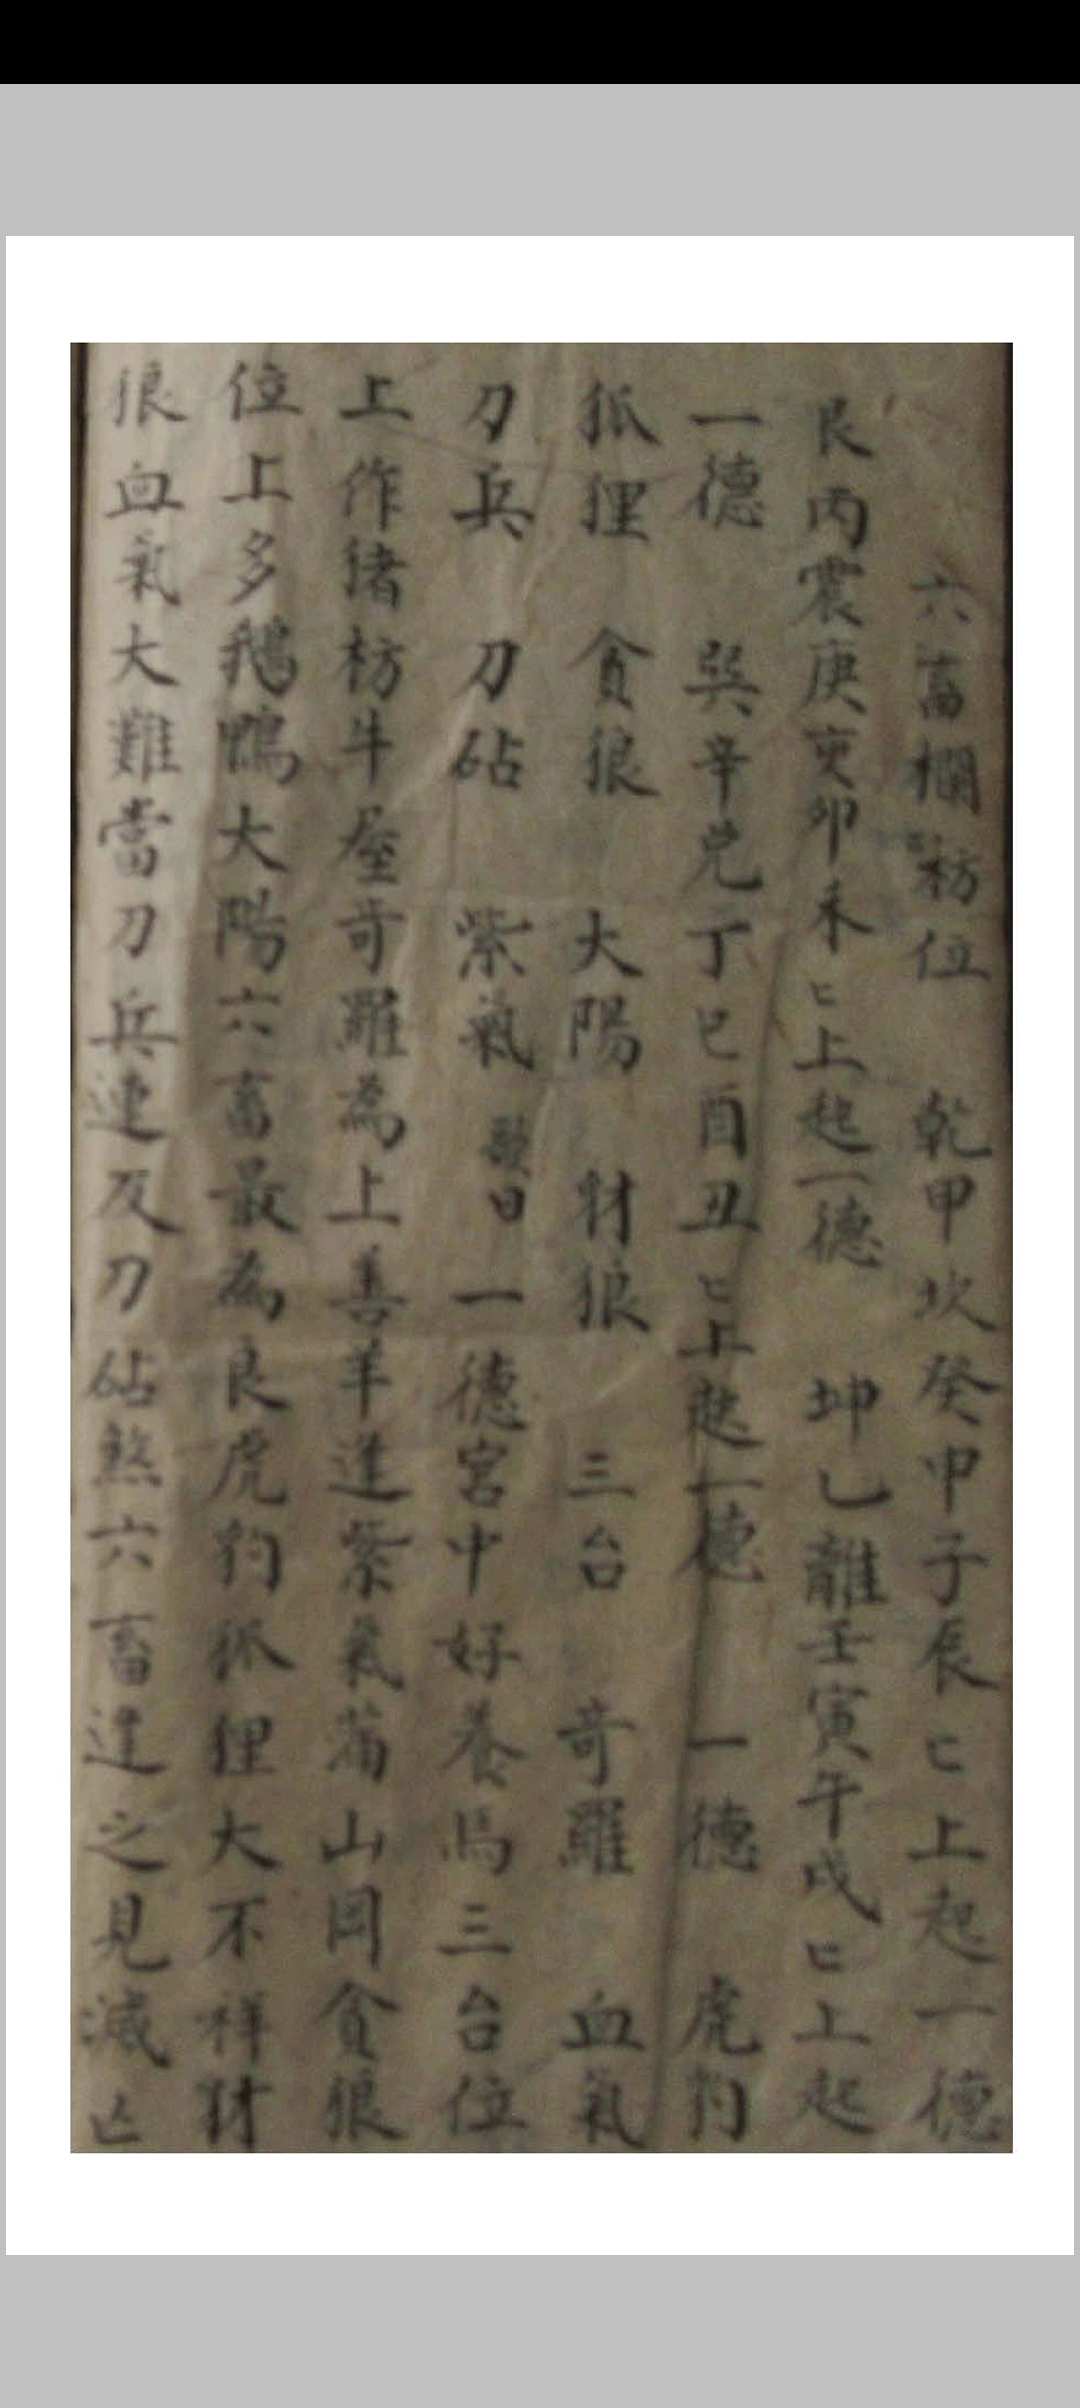 六畜欄枋位 乾甲坎癸申子辰巳上起一德
艮丙震庚亥卯未巳上起一德 坤乙離壬寅午戌巳上起
一德 巽辛兌丁巳酉丑巳上起一德 一德 虎豹
狐狸 貪狼 大陽 豺狼 三台 奇羅 血氣
刀兵 刀砧 紫氣 歌曰 一德宮中好養馬三台位
上作猪枋牛屋奇羅為上善羊逢紫氣滿山岡貪狼
位上多鵝鴨大陽六畜最為良虎豹狐狸大不祥豺
狼血氣大難當刀兵連及刀砧煞六畜逢之見滅亡